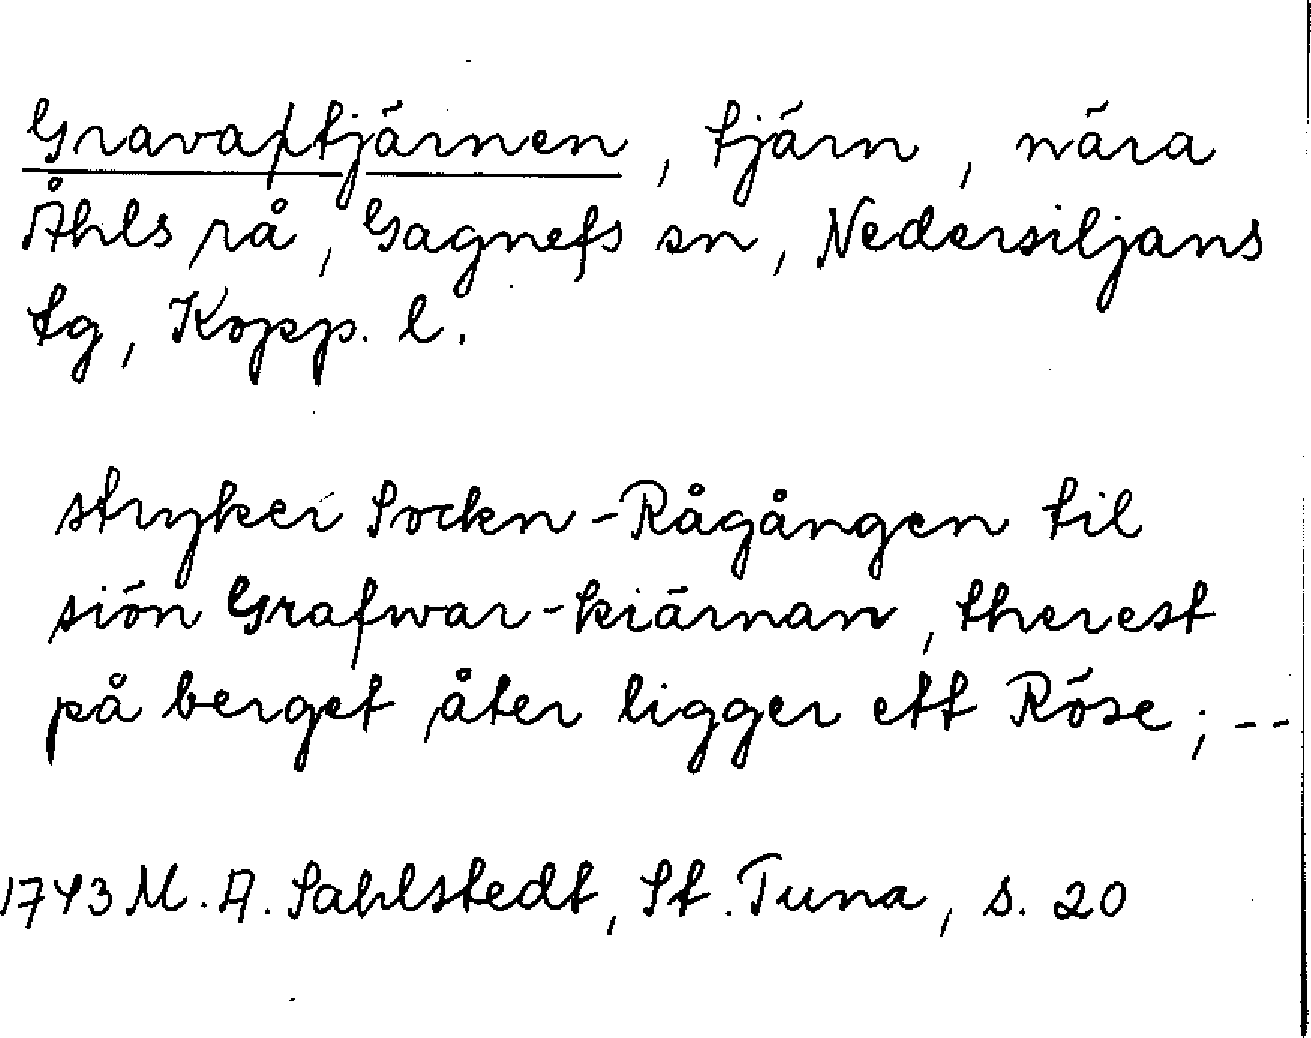 , tjärn, nära
Åhls rå, Gagnefs sn, Nedersiljans
tg, Kopp. l.
stryker Sockn-Rågången til
siön Grafwar-kiärnan, therest
på berget åter ligger ett Röse; --
1743 M. A. Sahlstedt, St. Tuna, s. 20